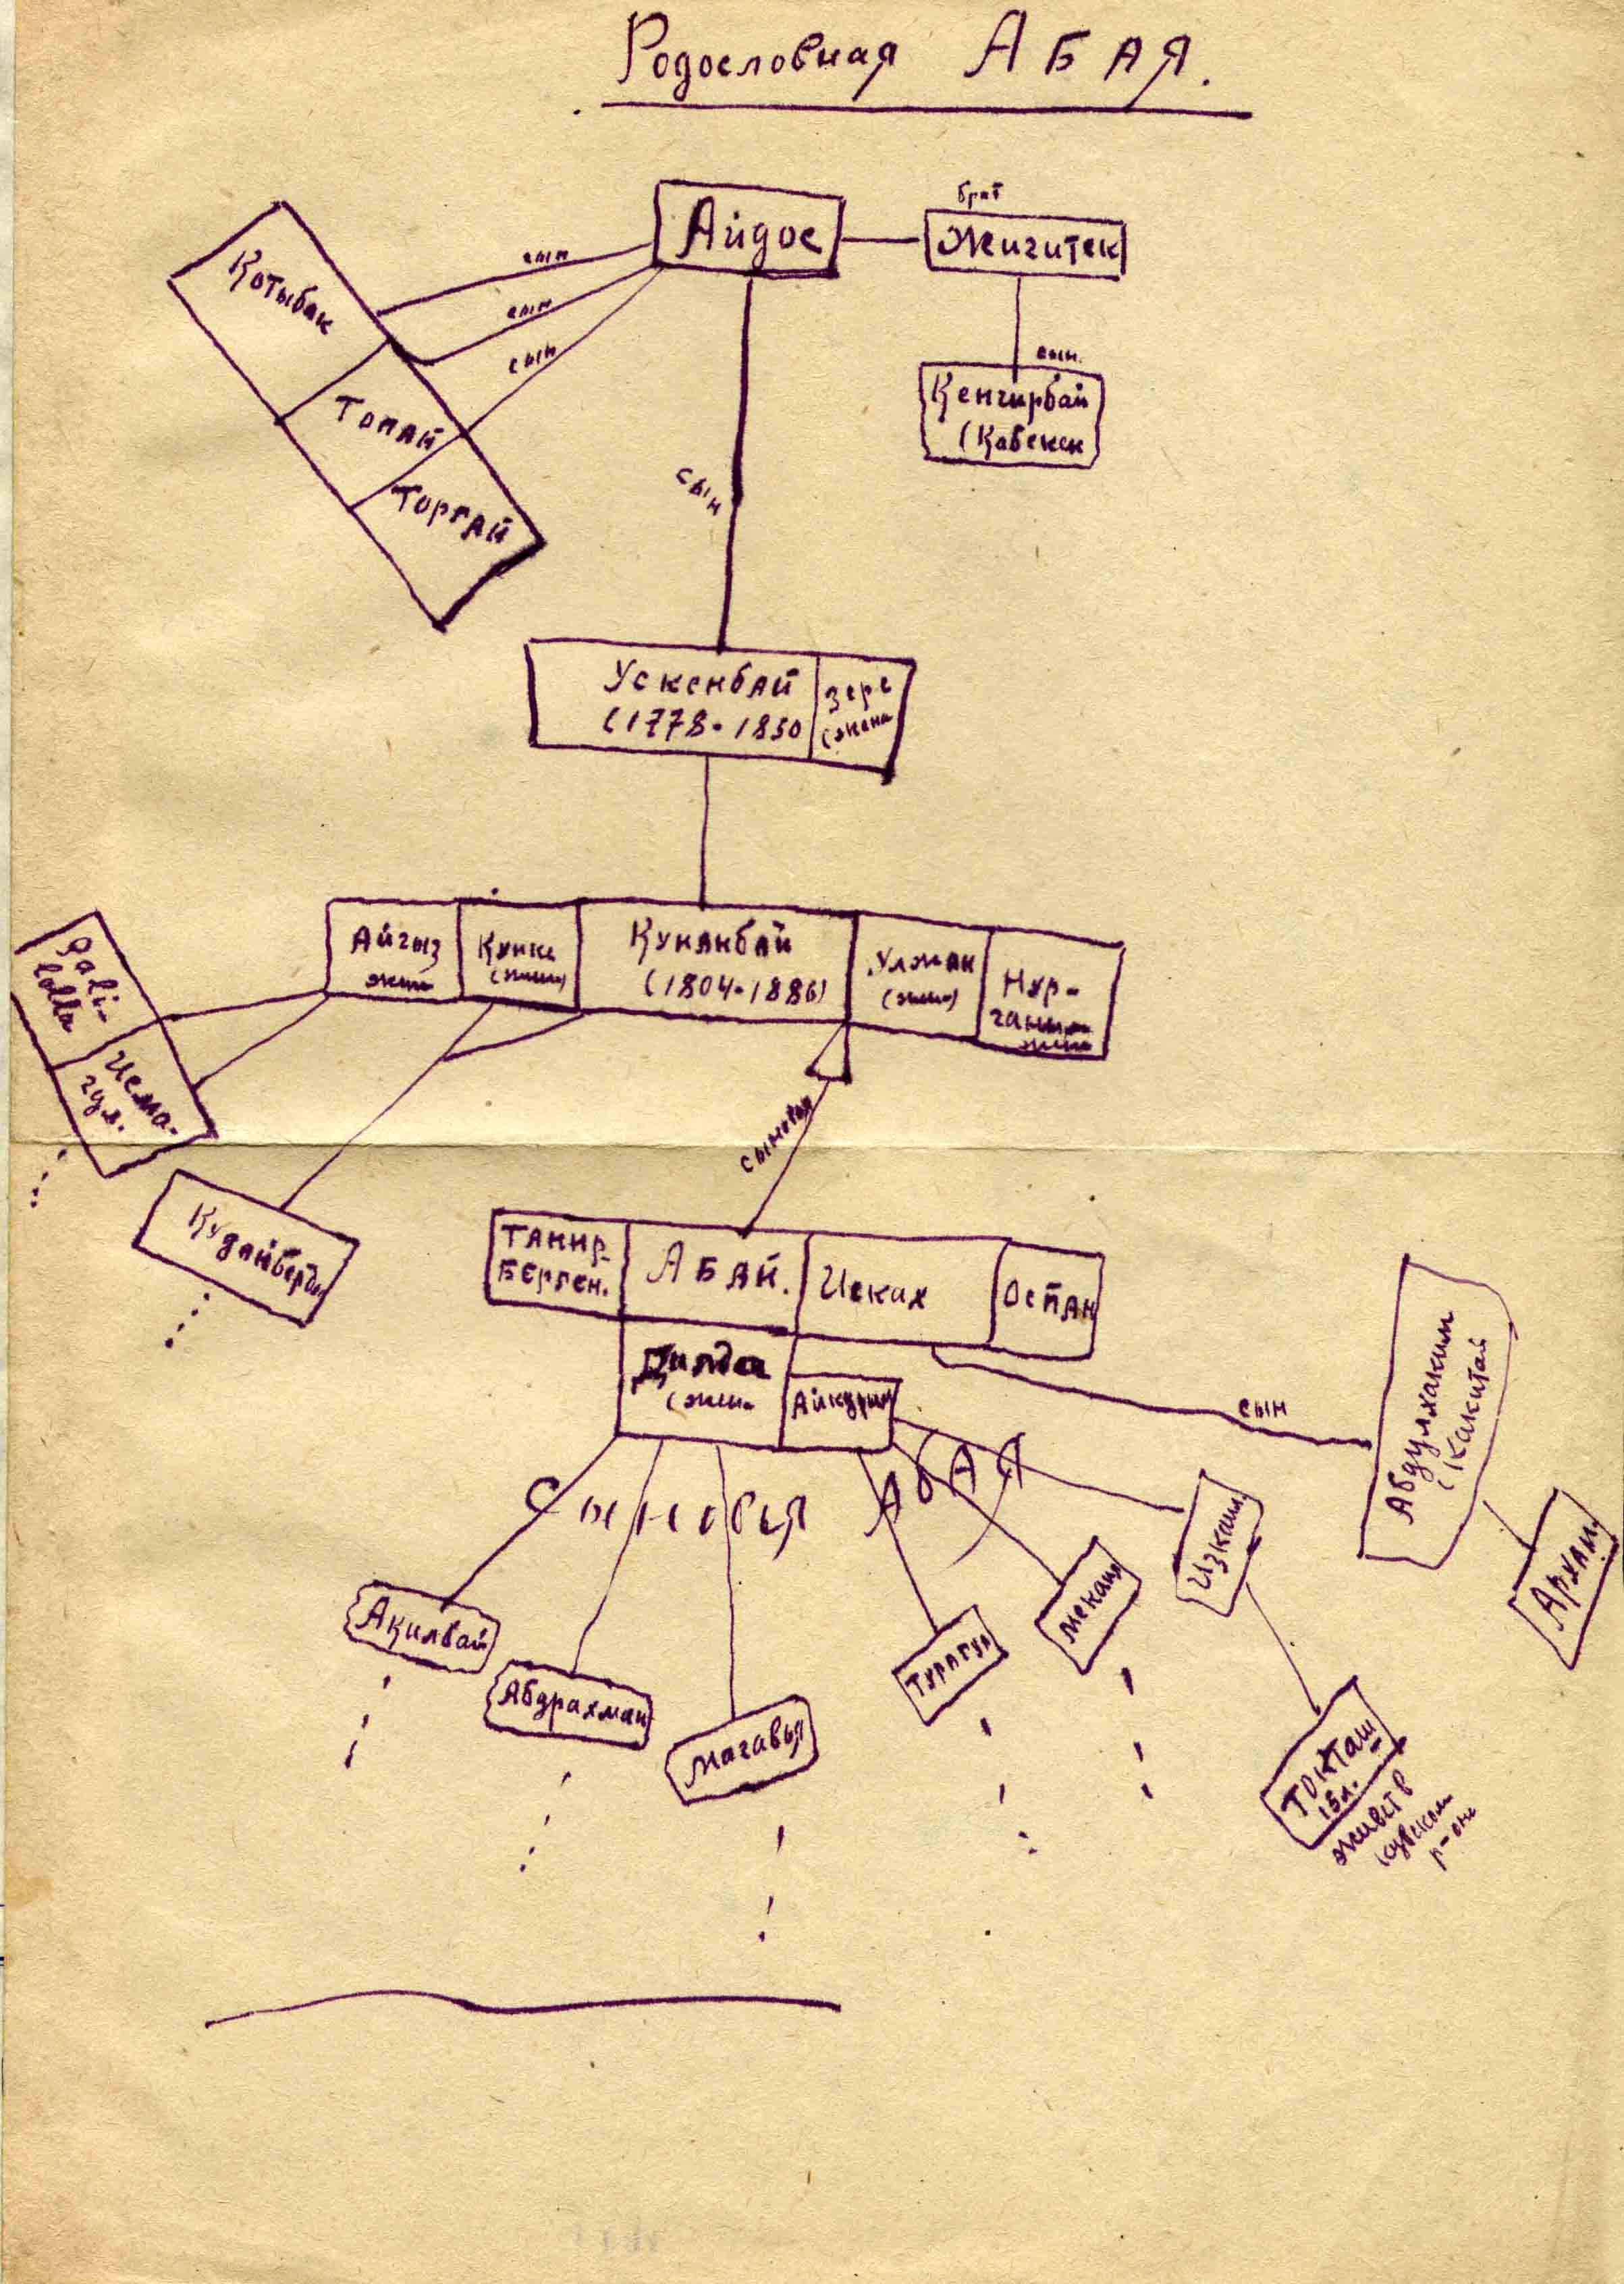 Родословная АБАЯ.
Айдос
брат
Жигитек
сын
сын
сын
Котыбак
Топай
Торгай
сын.
Кенгирбай
(Кабекен
сын
Ускенбай
(1778-1850
Зере
(жена
Айгыз
Кунке
Кунанбай
(1804-1886)
Улжан
Нур-
Исма-
гул.
Кудайберды
сыновья
Танир-
Берген.
АБАЙ.
Исках
Оспан
Дилда
Айкурим
сын
Абдулхаким
(Какитай
Архам.
Сыновья Абая
Акилбай
Абдрахман
Магавья
Турагул
Мекаил
Изкаил.
Токташ
15л.
живет в
р-оне